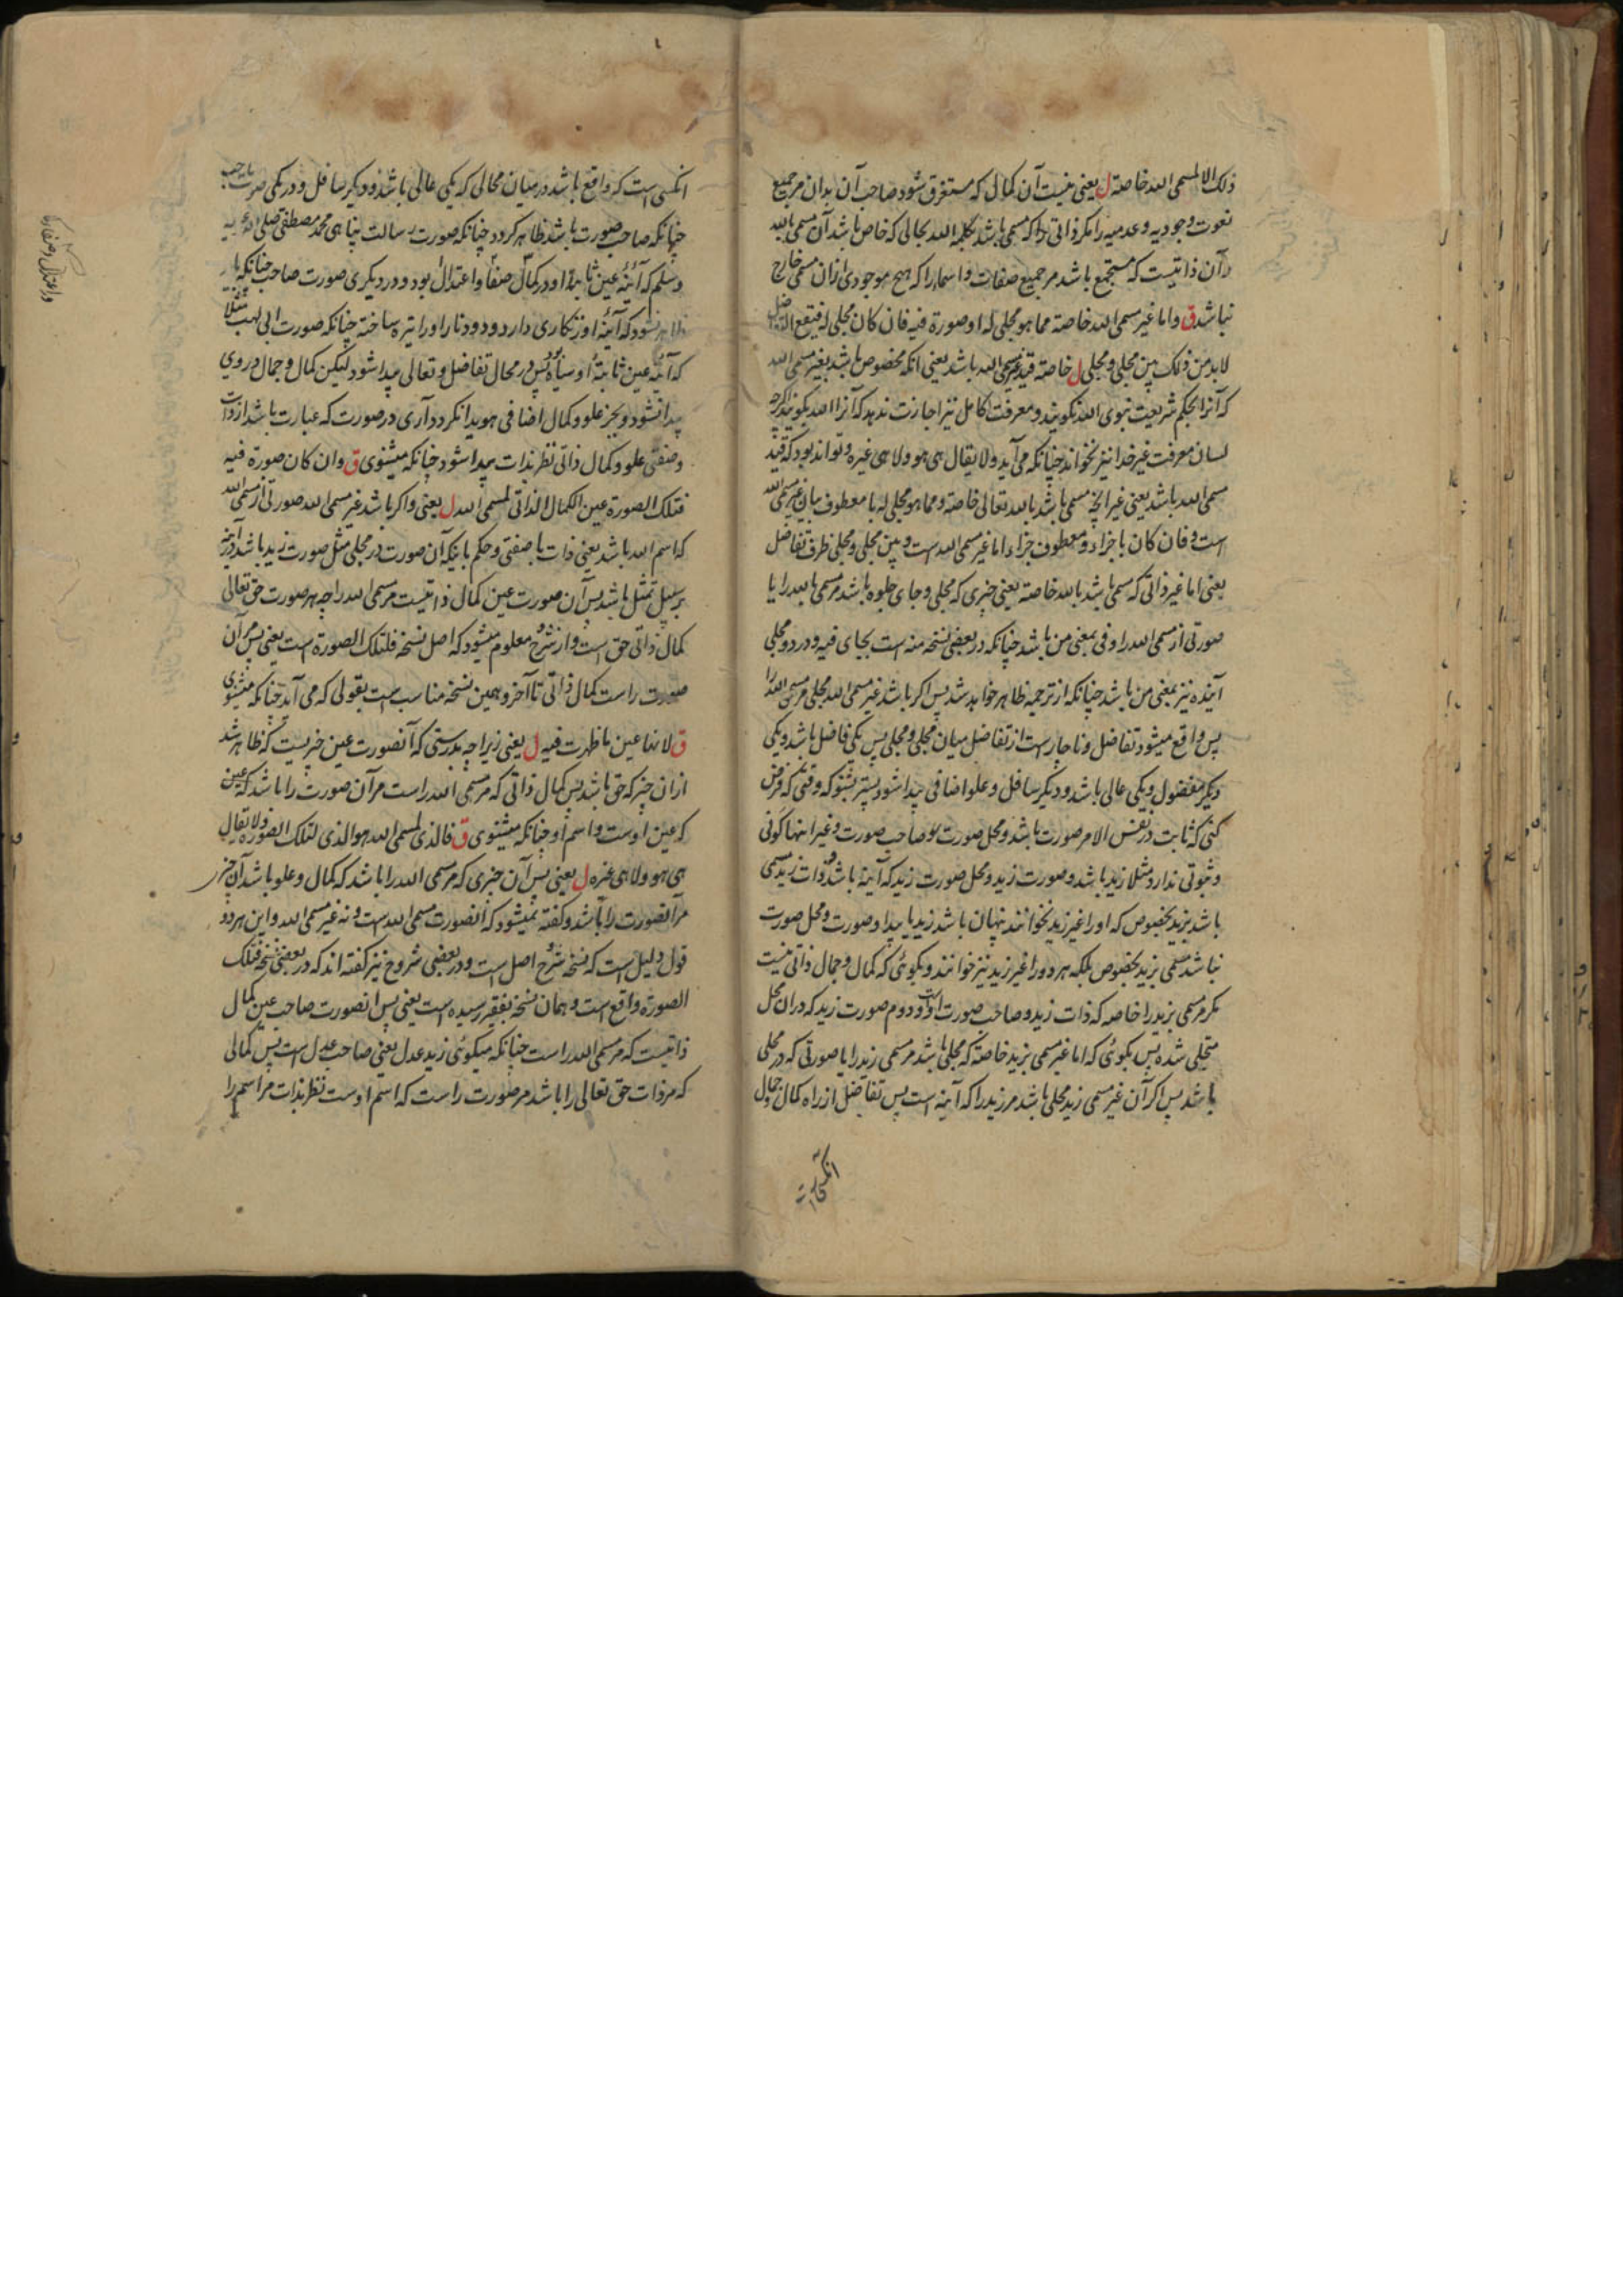 ذلک الا لمسمی الله خاصة ل یعنی نیست آن کمالی که مستغرق شود صاحب آن بدان مر جمیع
نعوت وجودیه و عدمیه را مکر ذاتی را که مسمی باشد بکلمه الله بحالی که خاص باشد آن مسمی بالله
و آن ذاتیست که مستجمع باشد مر جمیع صفات و اسماء را که هیچ موجودی ازان مسمی خارج
نباشد ق و اما غیر مسمی الله خاصة مما هو مجلی له او صورة فیه فان کان مجلی له فیقع التفاضل
لا بد من ذلک بین مجلی و مجلی ل خاصة قید غیر مسمی الله باشد یعنی انکه مخصوص باشد بغیر مسمی الله
که آنرا بحکم شریعت نبوی الله نکویند و معرفت کامل نیز اجازت ندهد که آنرا الله بکویند اکرچه
لسان معرفت غیر خدا نیز نخواند چنانکه می آید ولا یقال هی هو ولا هی غیره و تواند بود که قید
مسمی الله باشد یعنی غیر انچه مسمی باشد بالله تعالی خاصة و مما هو مجلی له با معطوف بیان غیر مسمی الله
است و فان کان با جزاء و معطوف جزاء اما غیر مسمی الله است و بین مجلی و مجلی ظرف تفاضل
یعنی اما غیر ذاتی که مسمی باشد بالله خاصة یعنی چیزی که مجلی و جای جلوه باشد مر مسمی بالله را یا
صورتی از مسمی الله را و فی بمعنی من باشد چنانکه در بعضی نسخه منه است بجای فیه و در دو مجلی
آینده نیز بمعنی من باشد چنانکه از ترجمه ظاهر خواهد شد پس اکر باشد غیر مسمی الله مجلی مر مسمی الله را
پس واقع میشود تفاضل و ناچارست از تفاضل میان مجلی و مجلی پس یکی فاضل باشد و یکی
دیکر مفضول و یکی عالی باشد و دیکر سافل و علو اضافی پیدا شود بشنو که وقتی که فرض
کنی که ثابت در نفس الامر صورت باشد و محل صورت بو صاحب صورت و غیر اینها کونی
و ثبوتی ندارد مثلا زید باشد و صورت زید و محل صورت زید که آینه باشد و ذات زید مسمی
باشد بزید بخصوص که او را غیر زید نخوانند پنهان باشد زید یا پیدا و صورت و محل صورت
نباشد مسمی بزید بخصوص بلکه هر دو را غیر زید نیز خوانند و بکوئی که کمال و جمال ذاتی نیست
مکر مر مسمی بزید را خاصه که ذات زید و صاحب صورت اوست و دوم صورت زید که دران محل
متجلی شده پس بکوئی که اما غیر مسمی بزید خاصة که مجلی باشد مر مسمی زید را یا صورتی که در مجلی
باشد پس اکر آن غیر مسمی زید مجلی باشد مر زید را که آینه است پس تفاضل از راه کمال و جمال
انکسی است که واقع باشد در میان مجالی که یکی عالی باشد و دیکر سافل و در یکی صورت صاحب
چنانکه صاحب صورت باشد ظاهر کردد چنانکه صورت رسالت پناهی محمد مصطفی صلی الله علیه
وسلم که آئینه عین ثابته او در کمال صفا و اعتدال بود و در دیکری صورت صاحب چنانکه باید
ظاهر نشود که آئینه او زنکاری دارد و دود نار او را تیره ساخته چنانکه صورت ابی لهب مثلا
که آئینه عین ثابتهٔ او سیاه بود پس در مجال تفاضل و تعالی پیدا شود لیکن کمال و جمال در روی
پیدا نشود و بجز علو و کمال اضافی هویدا نکردد آری در صورت که عبارت باشد از ذات
و صفتی علو و کمال ذاتی نظر بذات پیدا شود چنانکه میشنوی ق وان کان صورة فیه
فتلک الصورة عین الکمال الذاتی لمسمی الله ل یعنی و اکر باشد غیر مسمی الله صورتی از مسمی الله
که اسم الله باشد یعنی ذات با صفتی و حکم باینکه آن صورت در مجلی مثل صورت زید باشد در آینه
بر سبیل تمثل باشد پس آن صورت عین کمال ذاتیست مر مسمی الله را چه هر صورت حق تعالی
کمال ذاتی حق است و از شرح معلوم میشود که اصل نسخه فلتلک الصورة است یعنی پس مر آن
صورت راست کمال ذاتی تا آخر و همین نسخه مناسب است بقولی که می آید چنانکه میشنوی
ق لانها عین ما ظهرت فیه ل یعنی زیرا چه بدرستی که آنصورت عین چیزیست که ظاهر شد
ازان چیز که حق باشد پس کمال ذاتی که مر مسمی الله راست مر آن صورت را باشد که عین
که عین اوست و اسم او چنانکه میشنوی ق فالذی لمسمی الله هو الذی لتلک الصورة ولا یقال
هی هو ولا هی غیره ل یعنی پس آن چیزی که مر مسمی الله را باشد که کمال و علو باشد آن چیز
مر آنصورت را باشد و کفته نمیشود که آنصورت مسمی الله است و نه غیر مسمی الله و این هر دو
قول دلیل است که نسخه شرح اصل است و در بعضی شروح نیز کفته اند که در بعضی نسخه فتلک
الصورة واقع است و همان نسخه بفقیر رسیده است یعنی پس انصورت صاحب عین کمال
ذاتیست که مر مسمی الله راست چنانکه میکوئی زید عدل یعنی صاحب عدل است پس کمالی
که مر ذات حق تعالی را باشد مر صورت راست که اسم اوست نظر بذات مر اسم را